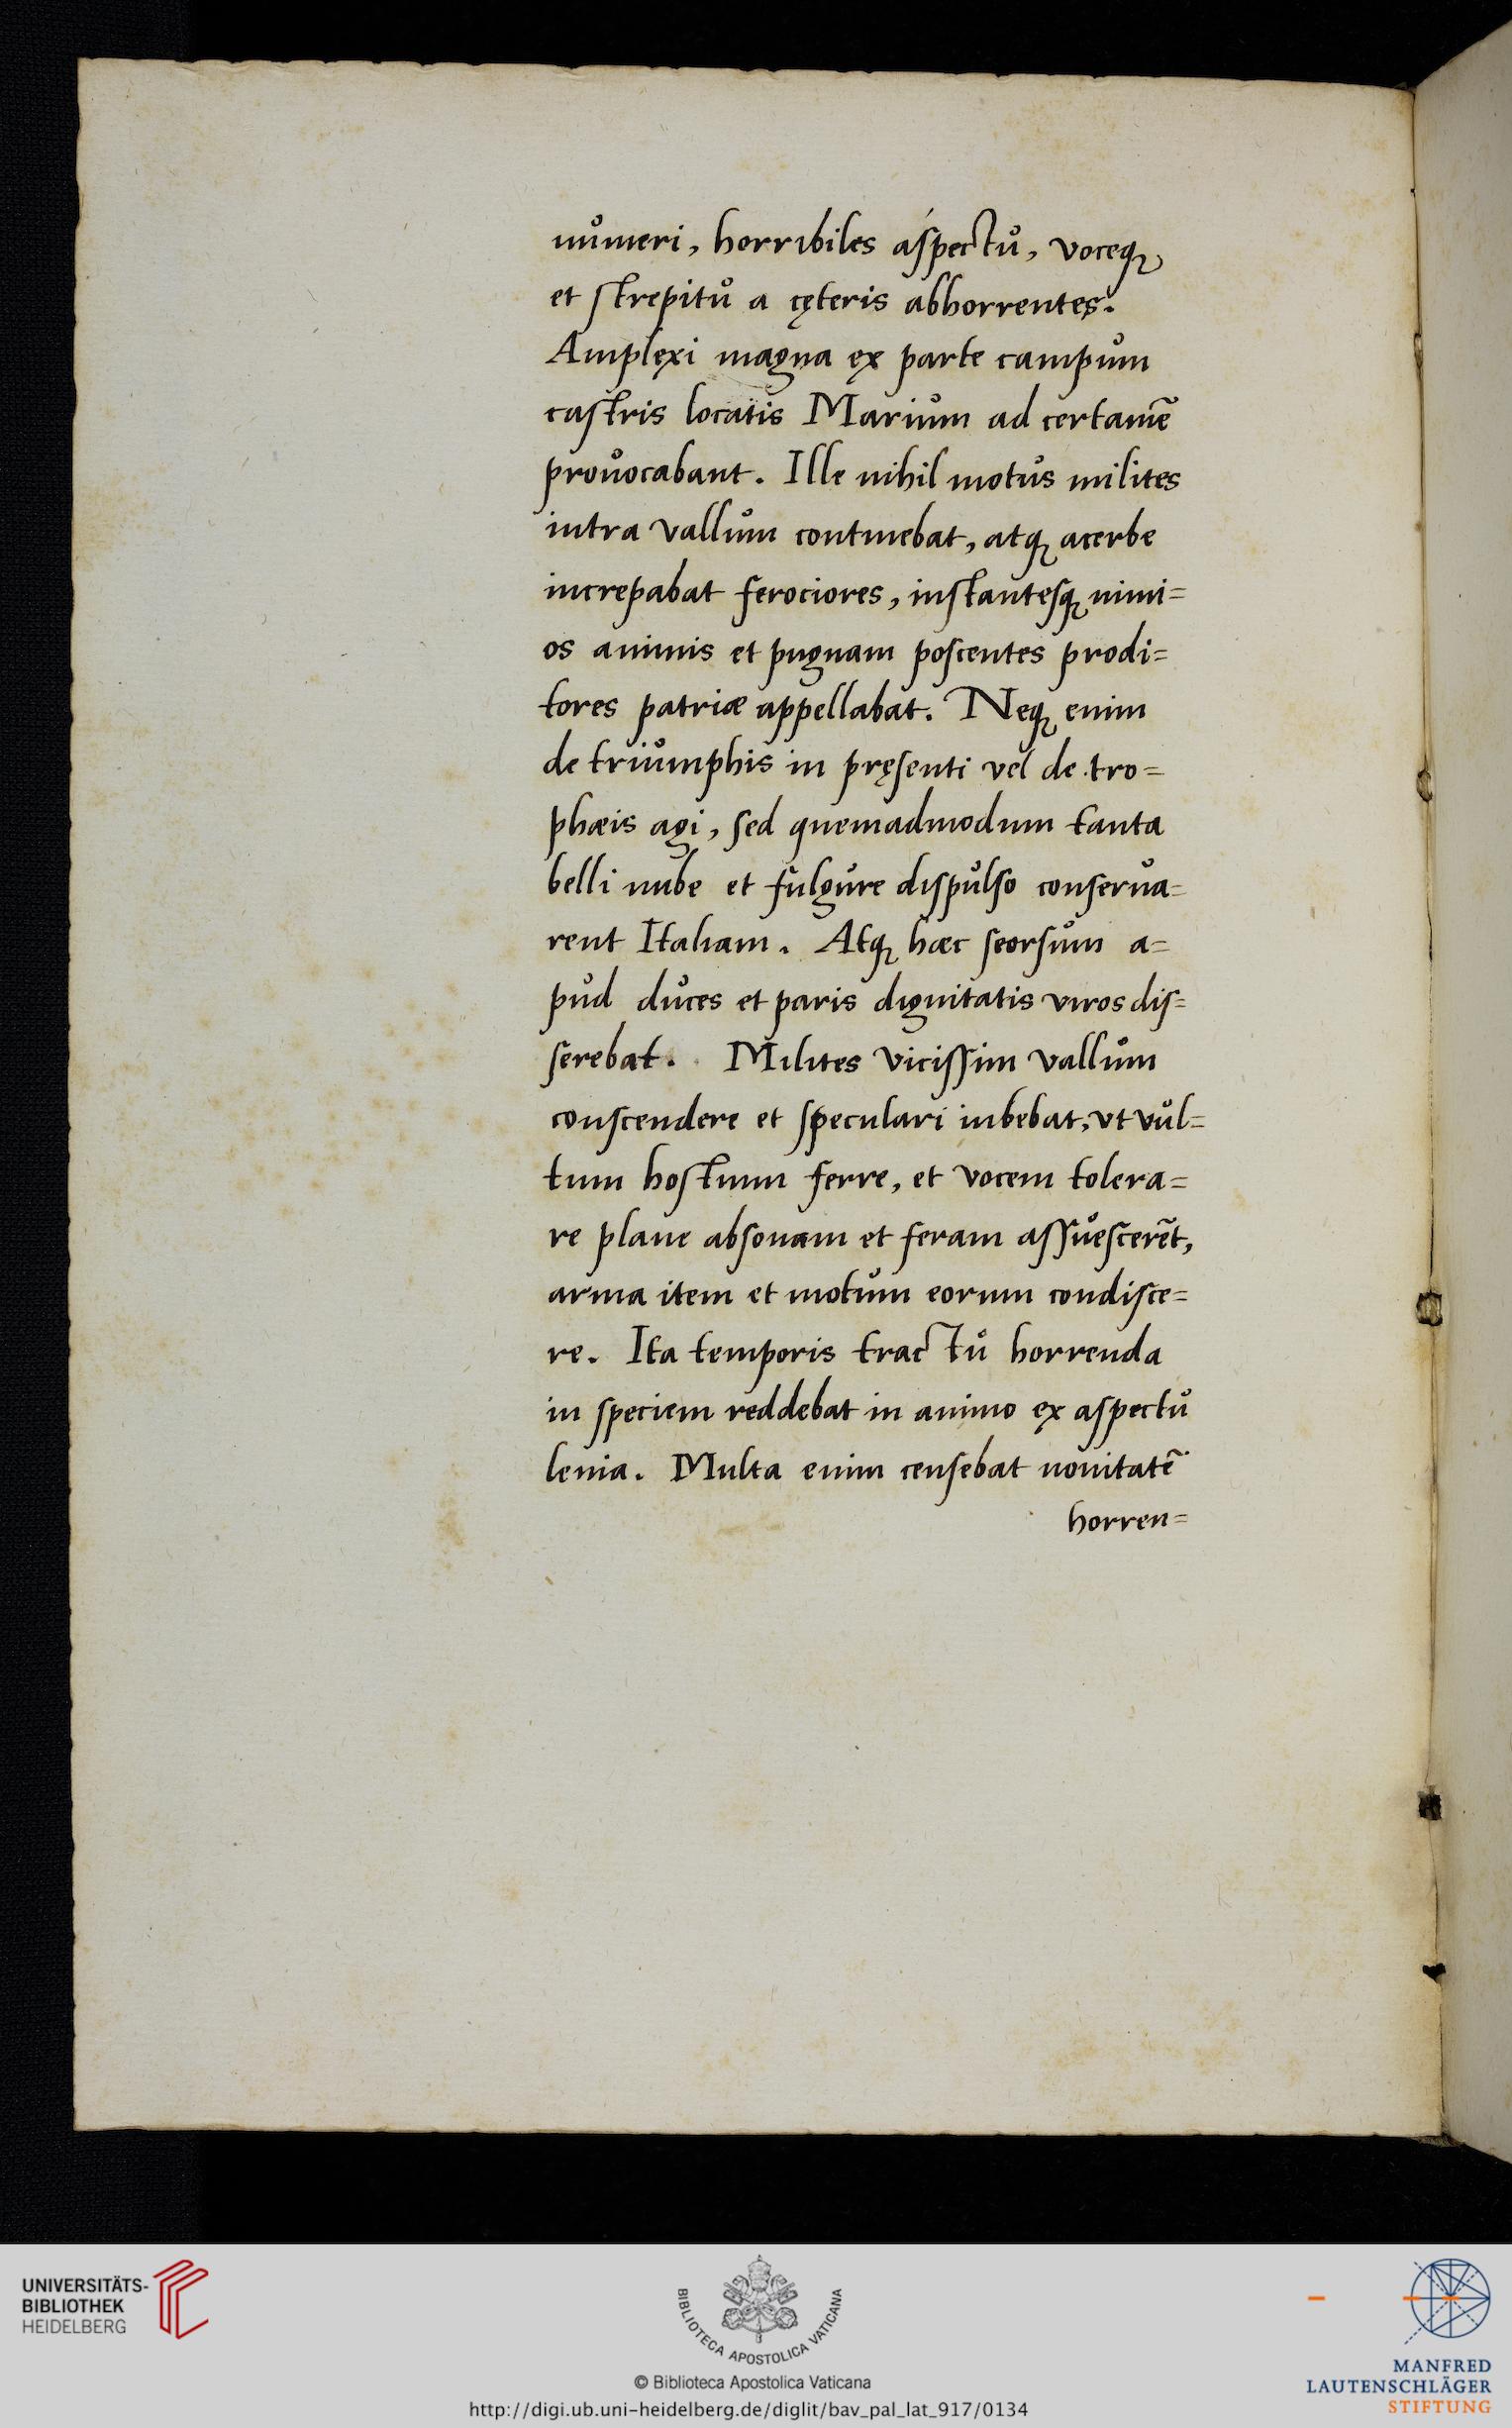 numeri, horribiles aspectu, voceq́ꝫ
et strepitu a cęteris abhorrentes.
Amplexi magna ex parte campum
castris locatis Marium ad certamē
prouocabant. Ille nihil motus milites
intra vallum continebat, atqꝫ acerbe
increpabat ferociores, instantesqꝫ nimi=
os animis et pugnam poscentes prodi=
tores patriæ appellabat. Neqꝫ enim
de triumphis in pręsenti vel de tro=
phæis agi, sed quemadmodum tanta
belli nube et fulgure dispulso conserua=
rent Italiam. Atqꝫ hæc seorsum a=
pud duces et paris dignitatis viros dis=
serebat. Milites vicissim vallum
conscendere et speculari iubebat, vt vul=
tum hostium ferre, et vocem tolera=
re plane absonam et feram assuescerēt,
arma item et motum eorum condisce=
re. Ita temporis tractu horrenda
in speciem reddebat in animo ex aspectu
lenia. Multa enim censebat nouitatē
horren=
UNIVERSITÄTS-
BIBLIOTHEK
HEIDELBERG
BIBLIOTECA APOSTOLICA VATICANA
© Biblioteca Apostolica Vaticana
http://digi.ub.uni-heidelberg.de/diglit/bav_pal_lat_917/0134
MANFRED
LAUTENSCHLÄGER
STIFTUNG